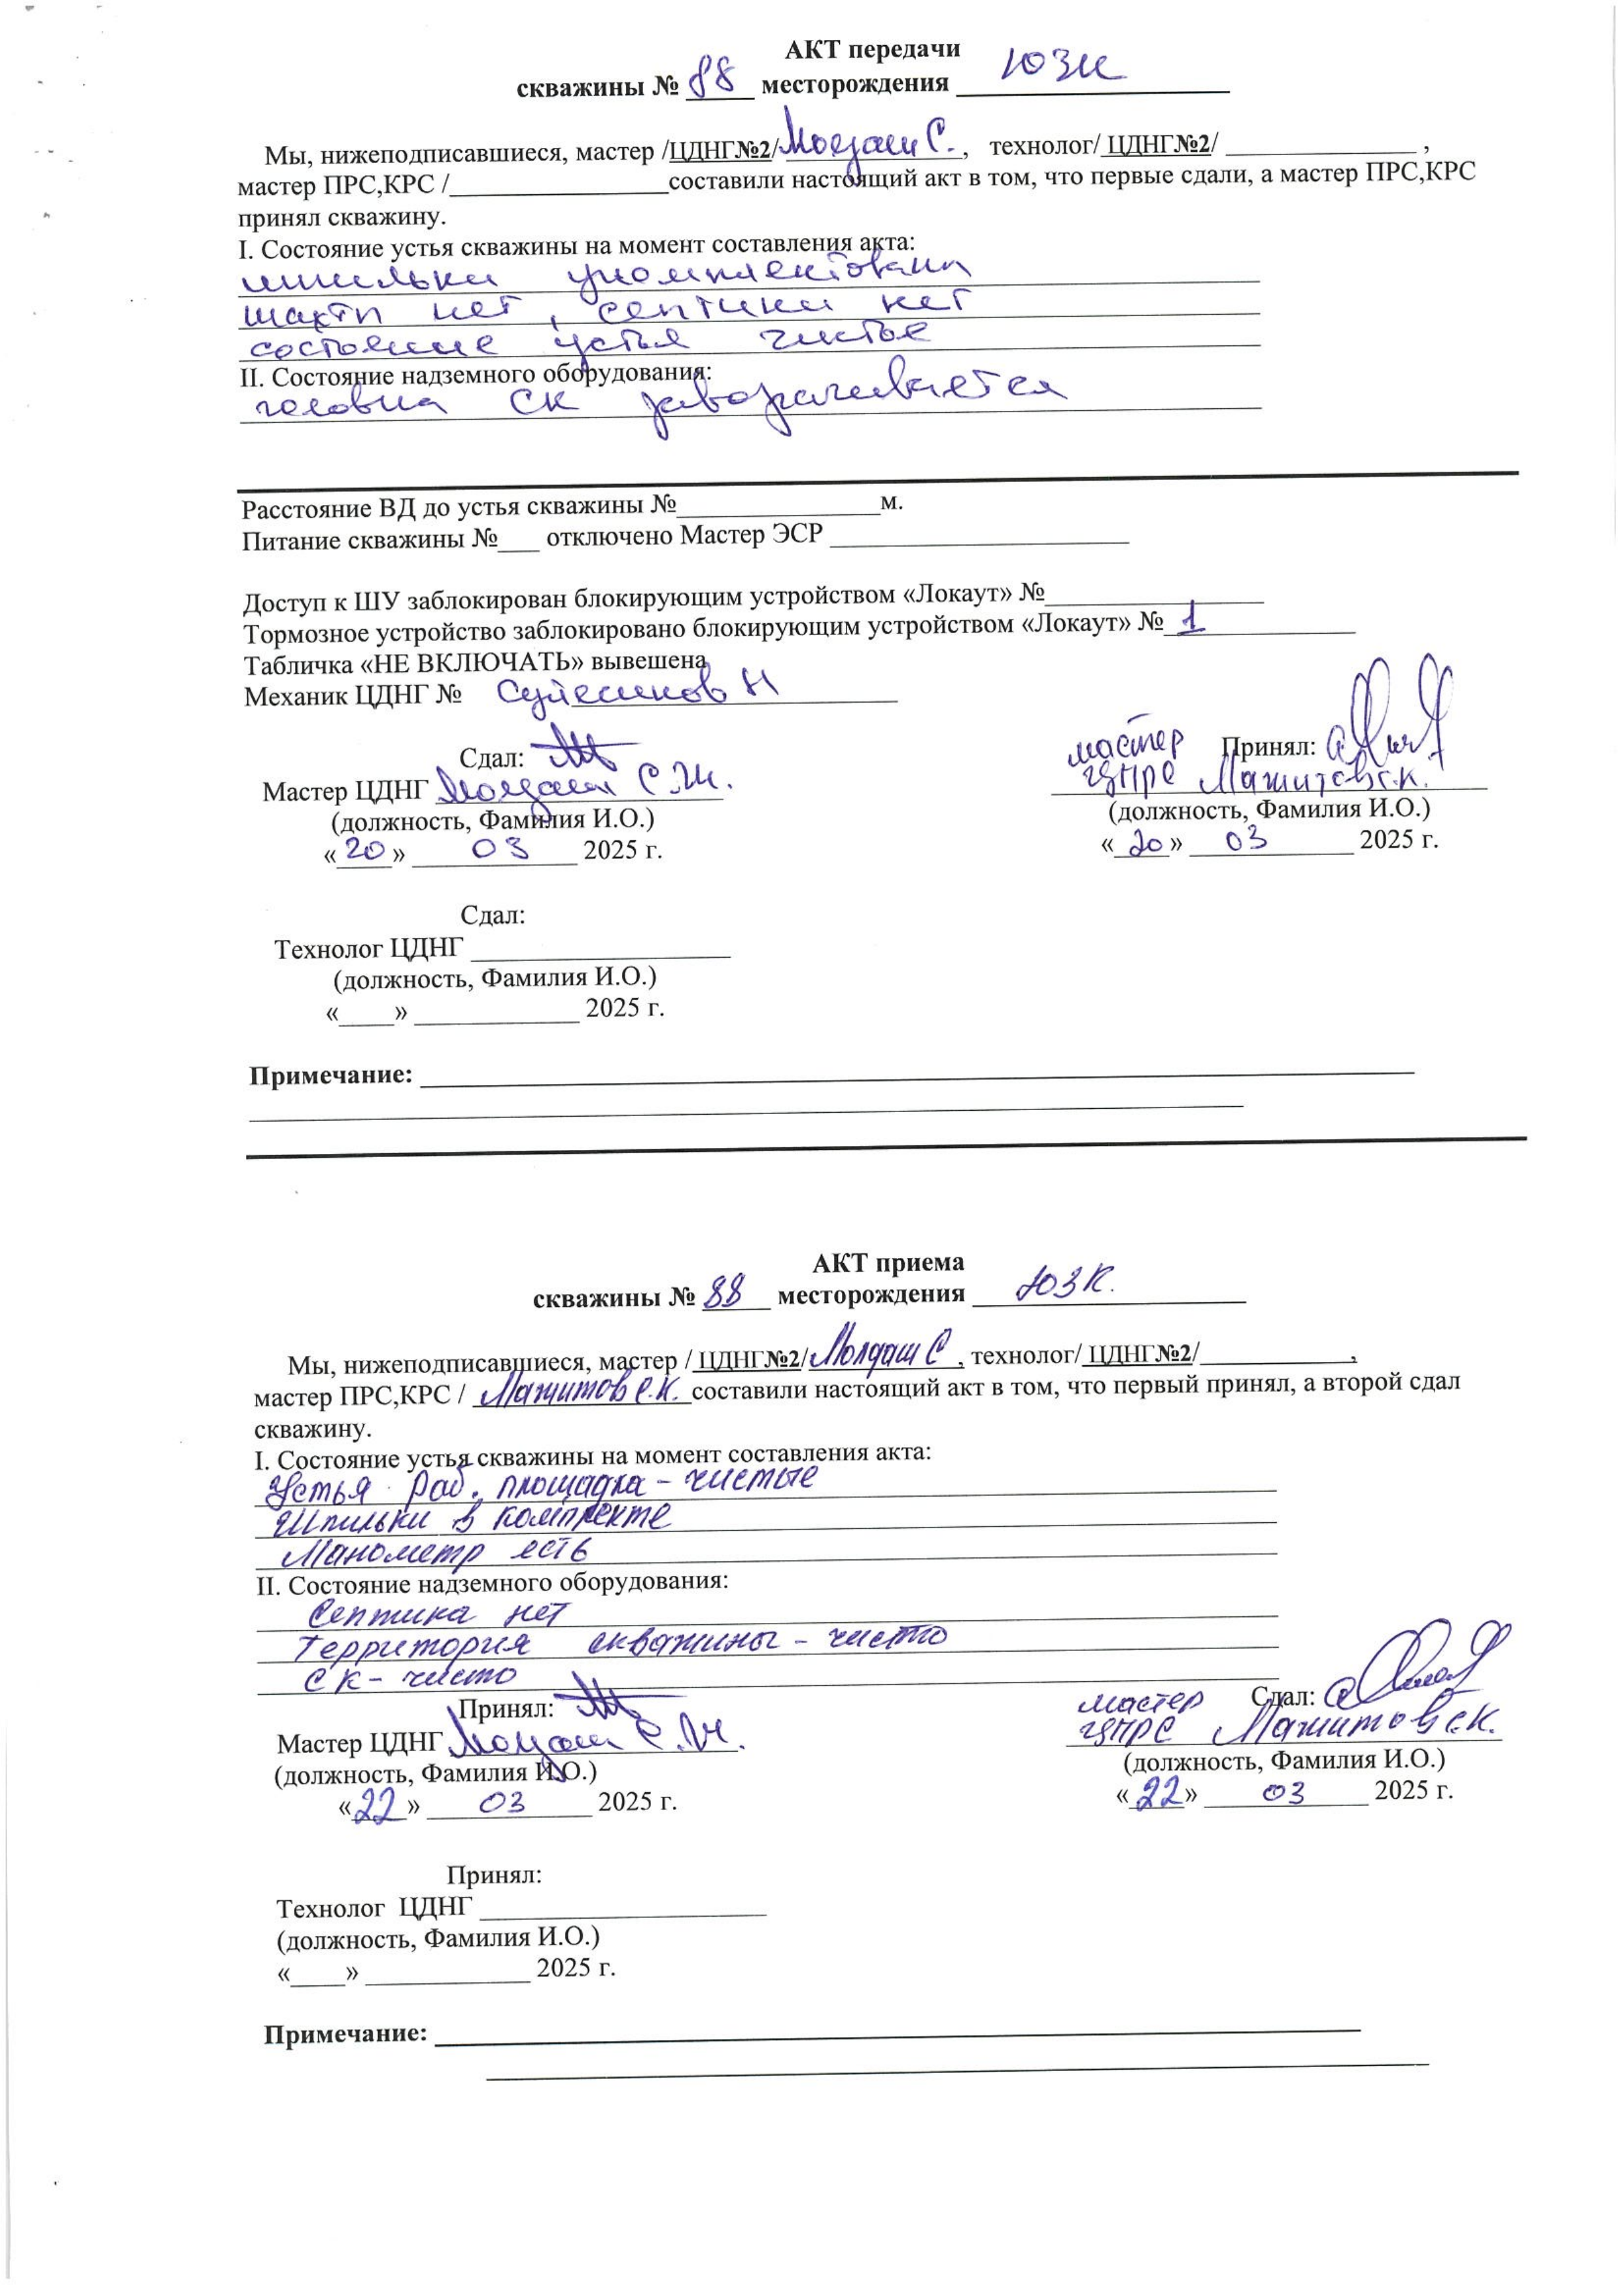 АКТ передачи
скважины № 88 месторождения ЮЗК
Мы, нижеподписавшиеся, мастер /ЦДНГ№2/ Молдаш С., технолог/ ЦДНГ№2/ ,
мастер ПРС,КРС / составили настоящий акт в том, что первые сдали, а мастер ПРС,КРС
принял скважину.
I. Состояние устья скважины на момент составления акта:
шпильки укомплектован
шахты нет, септики нет
состояние устья чистое
II. Состояние надземного оборудования:
головка СК заворачивается
Расстояние ВД до устья скважины № м.
Питание скважины № отключено Мастер ЭСР
Доступ к ШУ заблокирован блокирующим устройством «Локаут» №
Тормозное устройство заблокировано блокирующим устройством «Локаут» № 1
Табличка «НЕ ВКЛЮЧАТЬ» вывешена
Механик ЦДНГ № Н
Сдал: мастер Принял:
Мастер ЦДНГ Молдаш С.Ж. ЦПРС Мажитов С.К.
(должность, Фамилия И.О.) (должность, Фамилия И.О.)
«20» 03 2025 г. «20» 03 2025 г.
Сдал:
Технолог ЦДНГ
(должность, Фамилия И.О.)
« » 2025 г.
Примечание:
АКТ приема
скважины № 88 месторождения ЮЗК.
Мы, нижеподписавшиеся, мастер / ЦДНГ№2/ Молдаш С, технолог/ ЦДНГ№2/ ,
мастер ПРС,КРС / Мажитов С.К. составили настоящий акт в том, что первый принял, а второй сдал
скважину.
I. Состояние устья скважины на момент составления акта:
Устья раб. площадка - чистые
Шпильки в комплекте
Манометр есть
II. Состояние надземного оборудования:
Септика нет
Территория скважины - чисто
СК - чисто
Принял: мастер Сдал:
Мастер ЦДНГ Молдаш С.Ж. ЦПРС Мажитов С.К.
(должность, Фамилия И.О.) (должность, Фамилия И.О.)
«22» 03 2025 г. «22» 03 2025 г.
Принял:
Технолог ЦДНГ
(должность, Фамилия И.О.)
« » 2025 г.
Примечание: